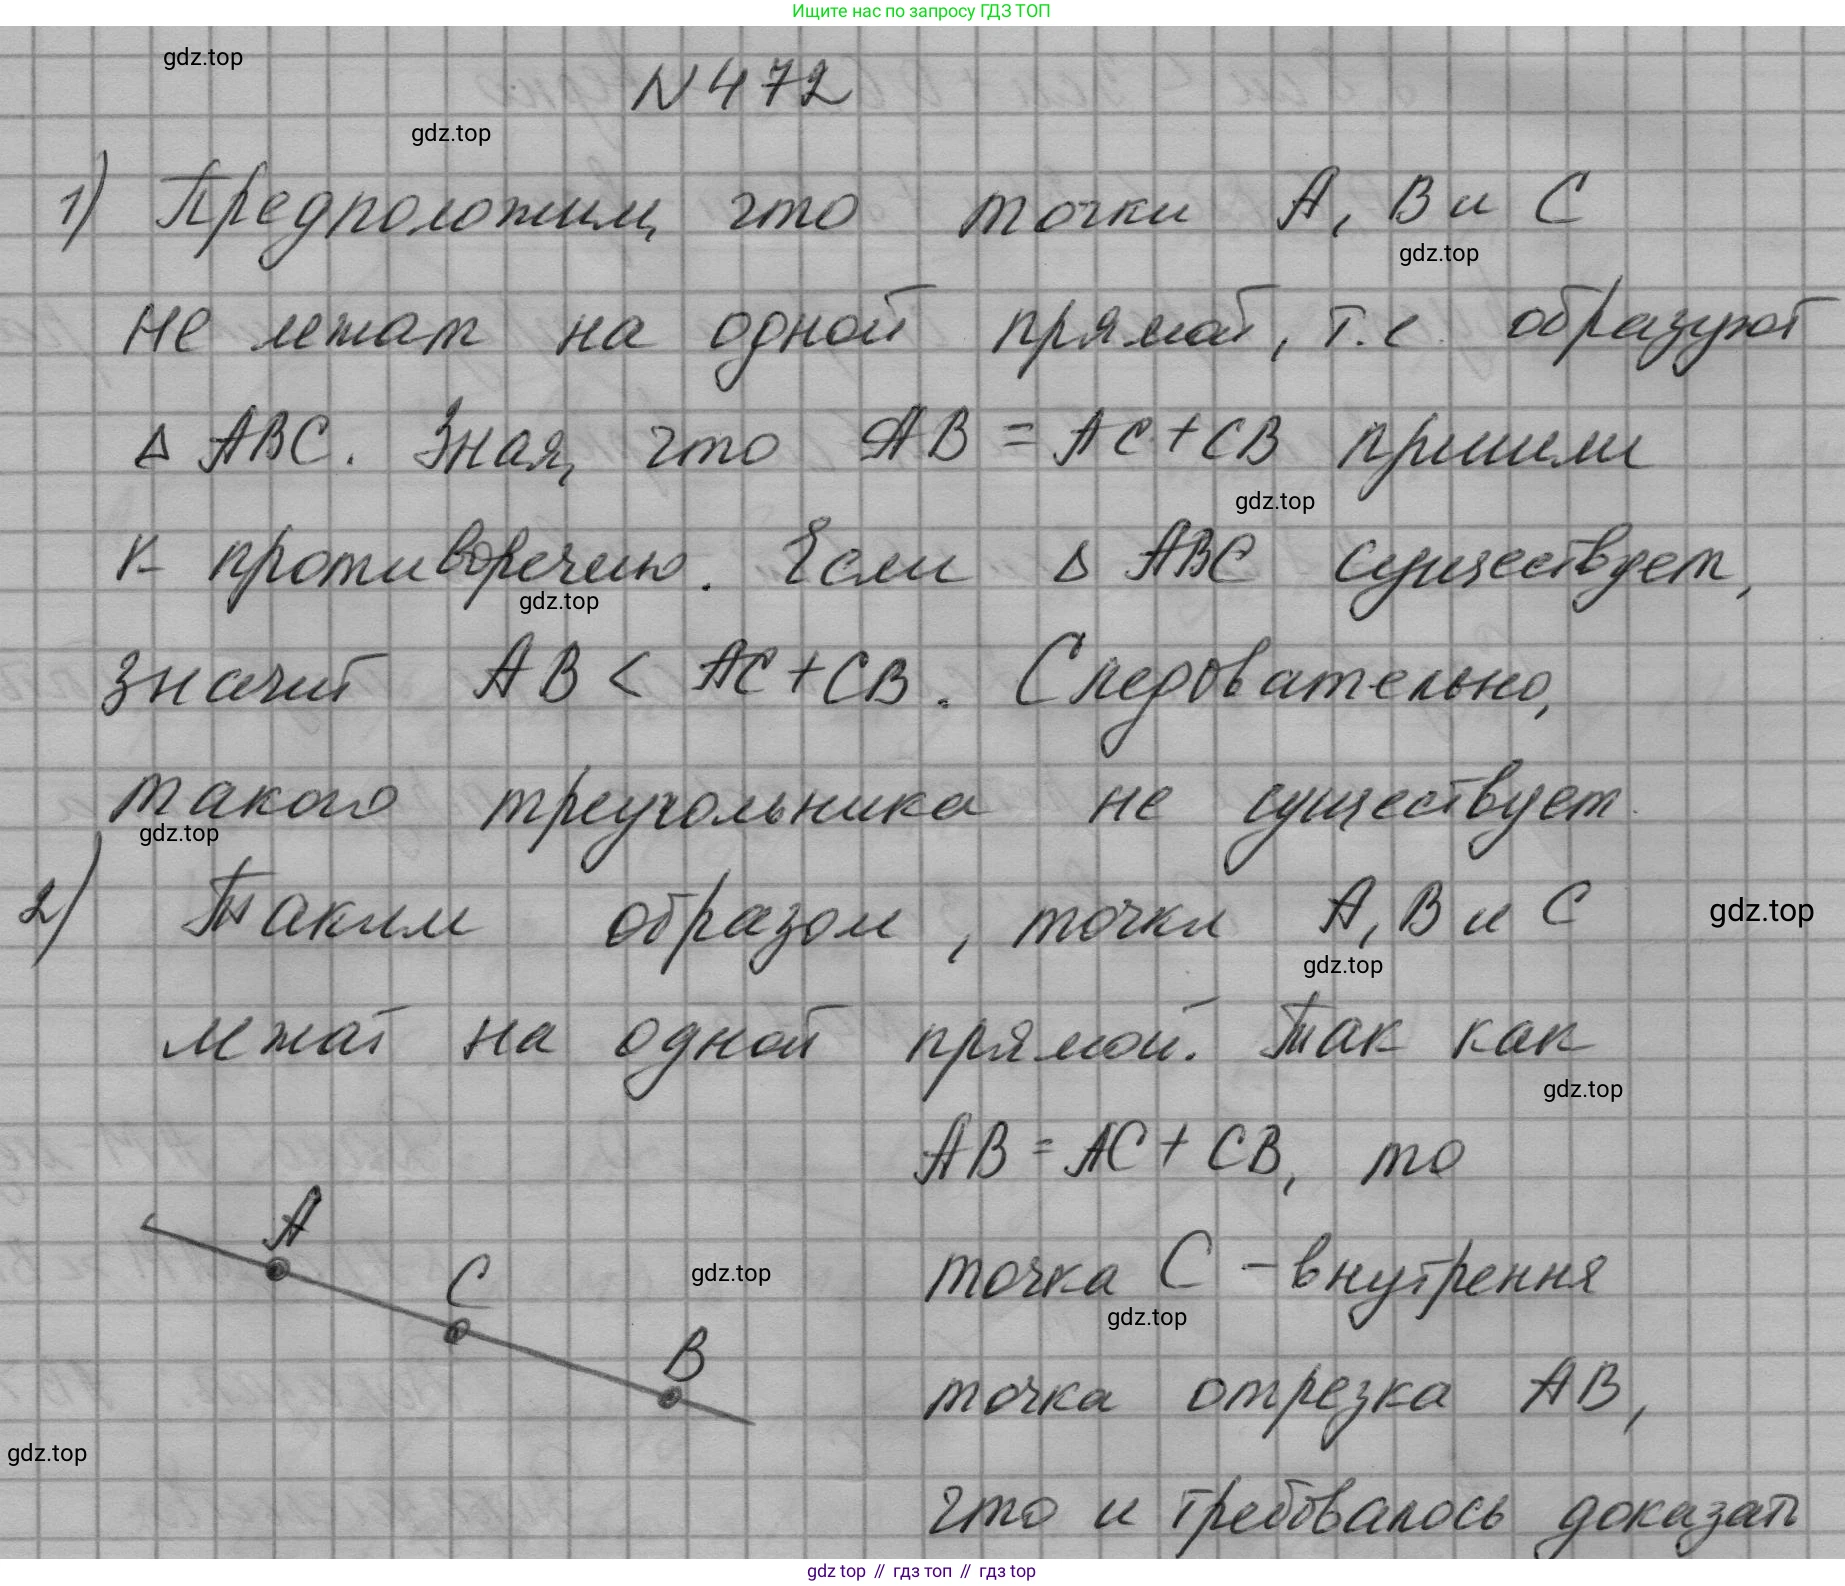 Ищите нас по запросу ГДЗ ТОП
gdz.top
N 472
gdz.top
1) Предположим, что точки A, B и C
gdz.top
не лежат на одной прямой, т.е. образуют
Δ ABC. Зная, что AB = AC + CB пришли
gdz.top
к противоречию. Если Δ ABC существует,
gdz.top
значит AB < AC + CB. Следовательно,
такого треугольника не существует.
gdz.top
2) Таким образом, точки A, B и C
gdz.top
gdz.top
лежат на одной прямой. Так как
gdz.top
AB = AC + CB, то
A
C
B
gdz.top
точка C - внутрення
gdz.top
точка отрезка AB,
gdz.top
что и требовалось доказать
gdz top // гдз топ // gdz top